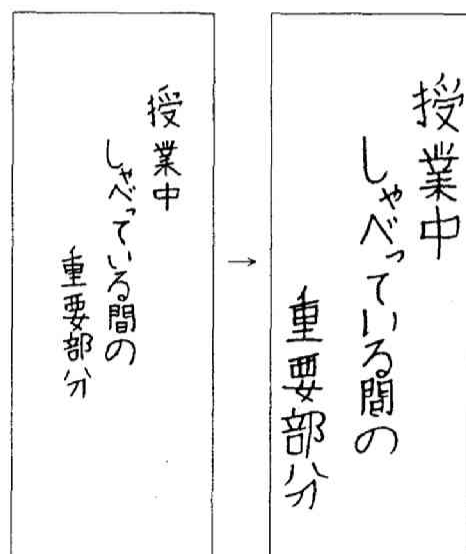 授業中
しゃべっている間の
重要部分
→
授業中
しゃべっている間の
重要部分